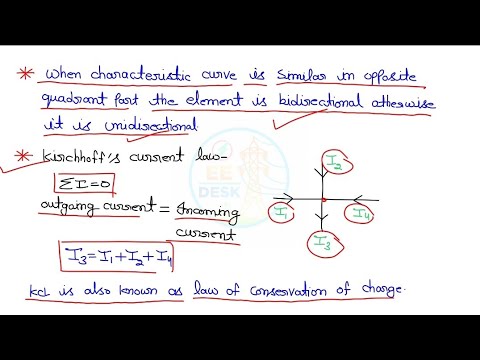 * When characteristic curve is similar in opposite
quadrant part the element is bidirectional otherwise
it is unidirectional
* Kirchhoff's current law-
ΣI=0
outgoing current = Incoming
current
I3=I1+I2+I4
I2
I1
I4
I3
EE
DESK
KCL is also known as law of conservation of charge.